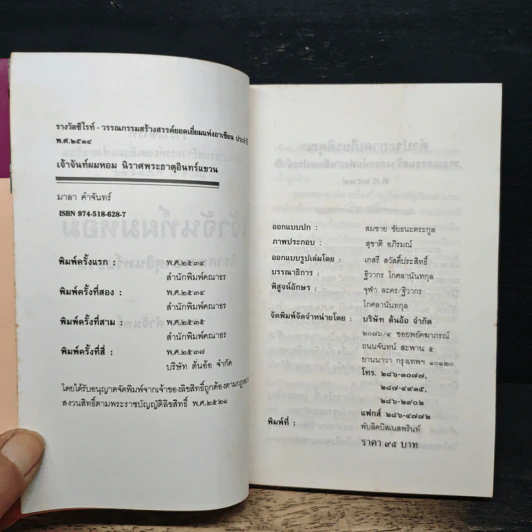 รางวัลซีไรท์ - วรรณกรรมสร้างสรรค์ยอดเยี่ยมแห่งอาเซียน ประจำปี
พ.ศ.๒๕๓๔
เจ้าจันท์ผมหอม นิราศพระธาตุอินทร์แขวน
มาลา คำจันทร์
ISBN 974-518-628-7
พิมพ์ครั้งแรก : พ.ศ.๒๕๓๔
สำนักพิมพ์คณาธร
พิมพ์ครั้งที่สอง : พ.ศ.๒๕๓๔
สำนักพิมพ์คณาธร
พิมพ์ครั้งที่สาม : พ.ศ.๒๕๓๕
สำนักพิมพ์คณาธร
พิมพ์ครั้งที่สี่ : พ.ศ.๒๕๓๗
บริษัท ต้นอ้อ จำกัด
โดยได้รับอนุญาตจัดพิมพ์จากเจ้าของลิขสิทธิ์ถูกต้องตามกฎหมาย
สงวนสิทธิ์ตามพระราชบัญญัติลิขสิทธิ์ พ.ศ.๒๕๒๑
ออกแบบปก : สมชาย ชัยธนะตระกูล
ภาพประกอบ : สุชาติ อภิรมณ์
ออกแบบรูปเล่มโดย : เกสรี สวัสดิ์ประสิทธิ์
บรรณาธิการ : ฐิวากร โกศลานันทกุล
พิสูจน์อักษร : จุฬา ละคร/ฐิวากร
โกศลานันทกุล
จัดพิมพ์จัดจำหน่ายโดย : บริษัท ต้นอ้อ จำกัด
๒๐๘๖/๔ ซอยพยัคฆาภรณ์
ถนนจันทน์ สะพาน ๕
ยานนาวา กรุงเทพฯ ๑๐๑๒๐
โทร. ๒๘๖-๓๐๗๗,
๒๘๗-๔๙๓๕,
๒๘๖-๒๙๐๒
แฟกส์ ๒๘๖-๔๗๗๒
พิมพ์ที่ : พับลิคบิสเนสพรินท์
ราคา ๙๕ บาท